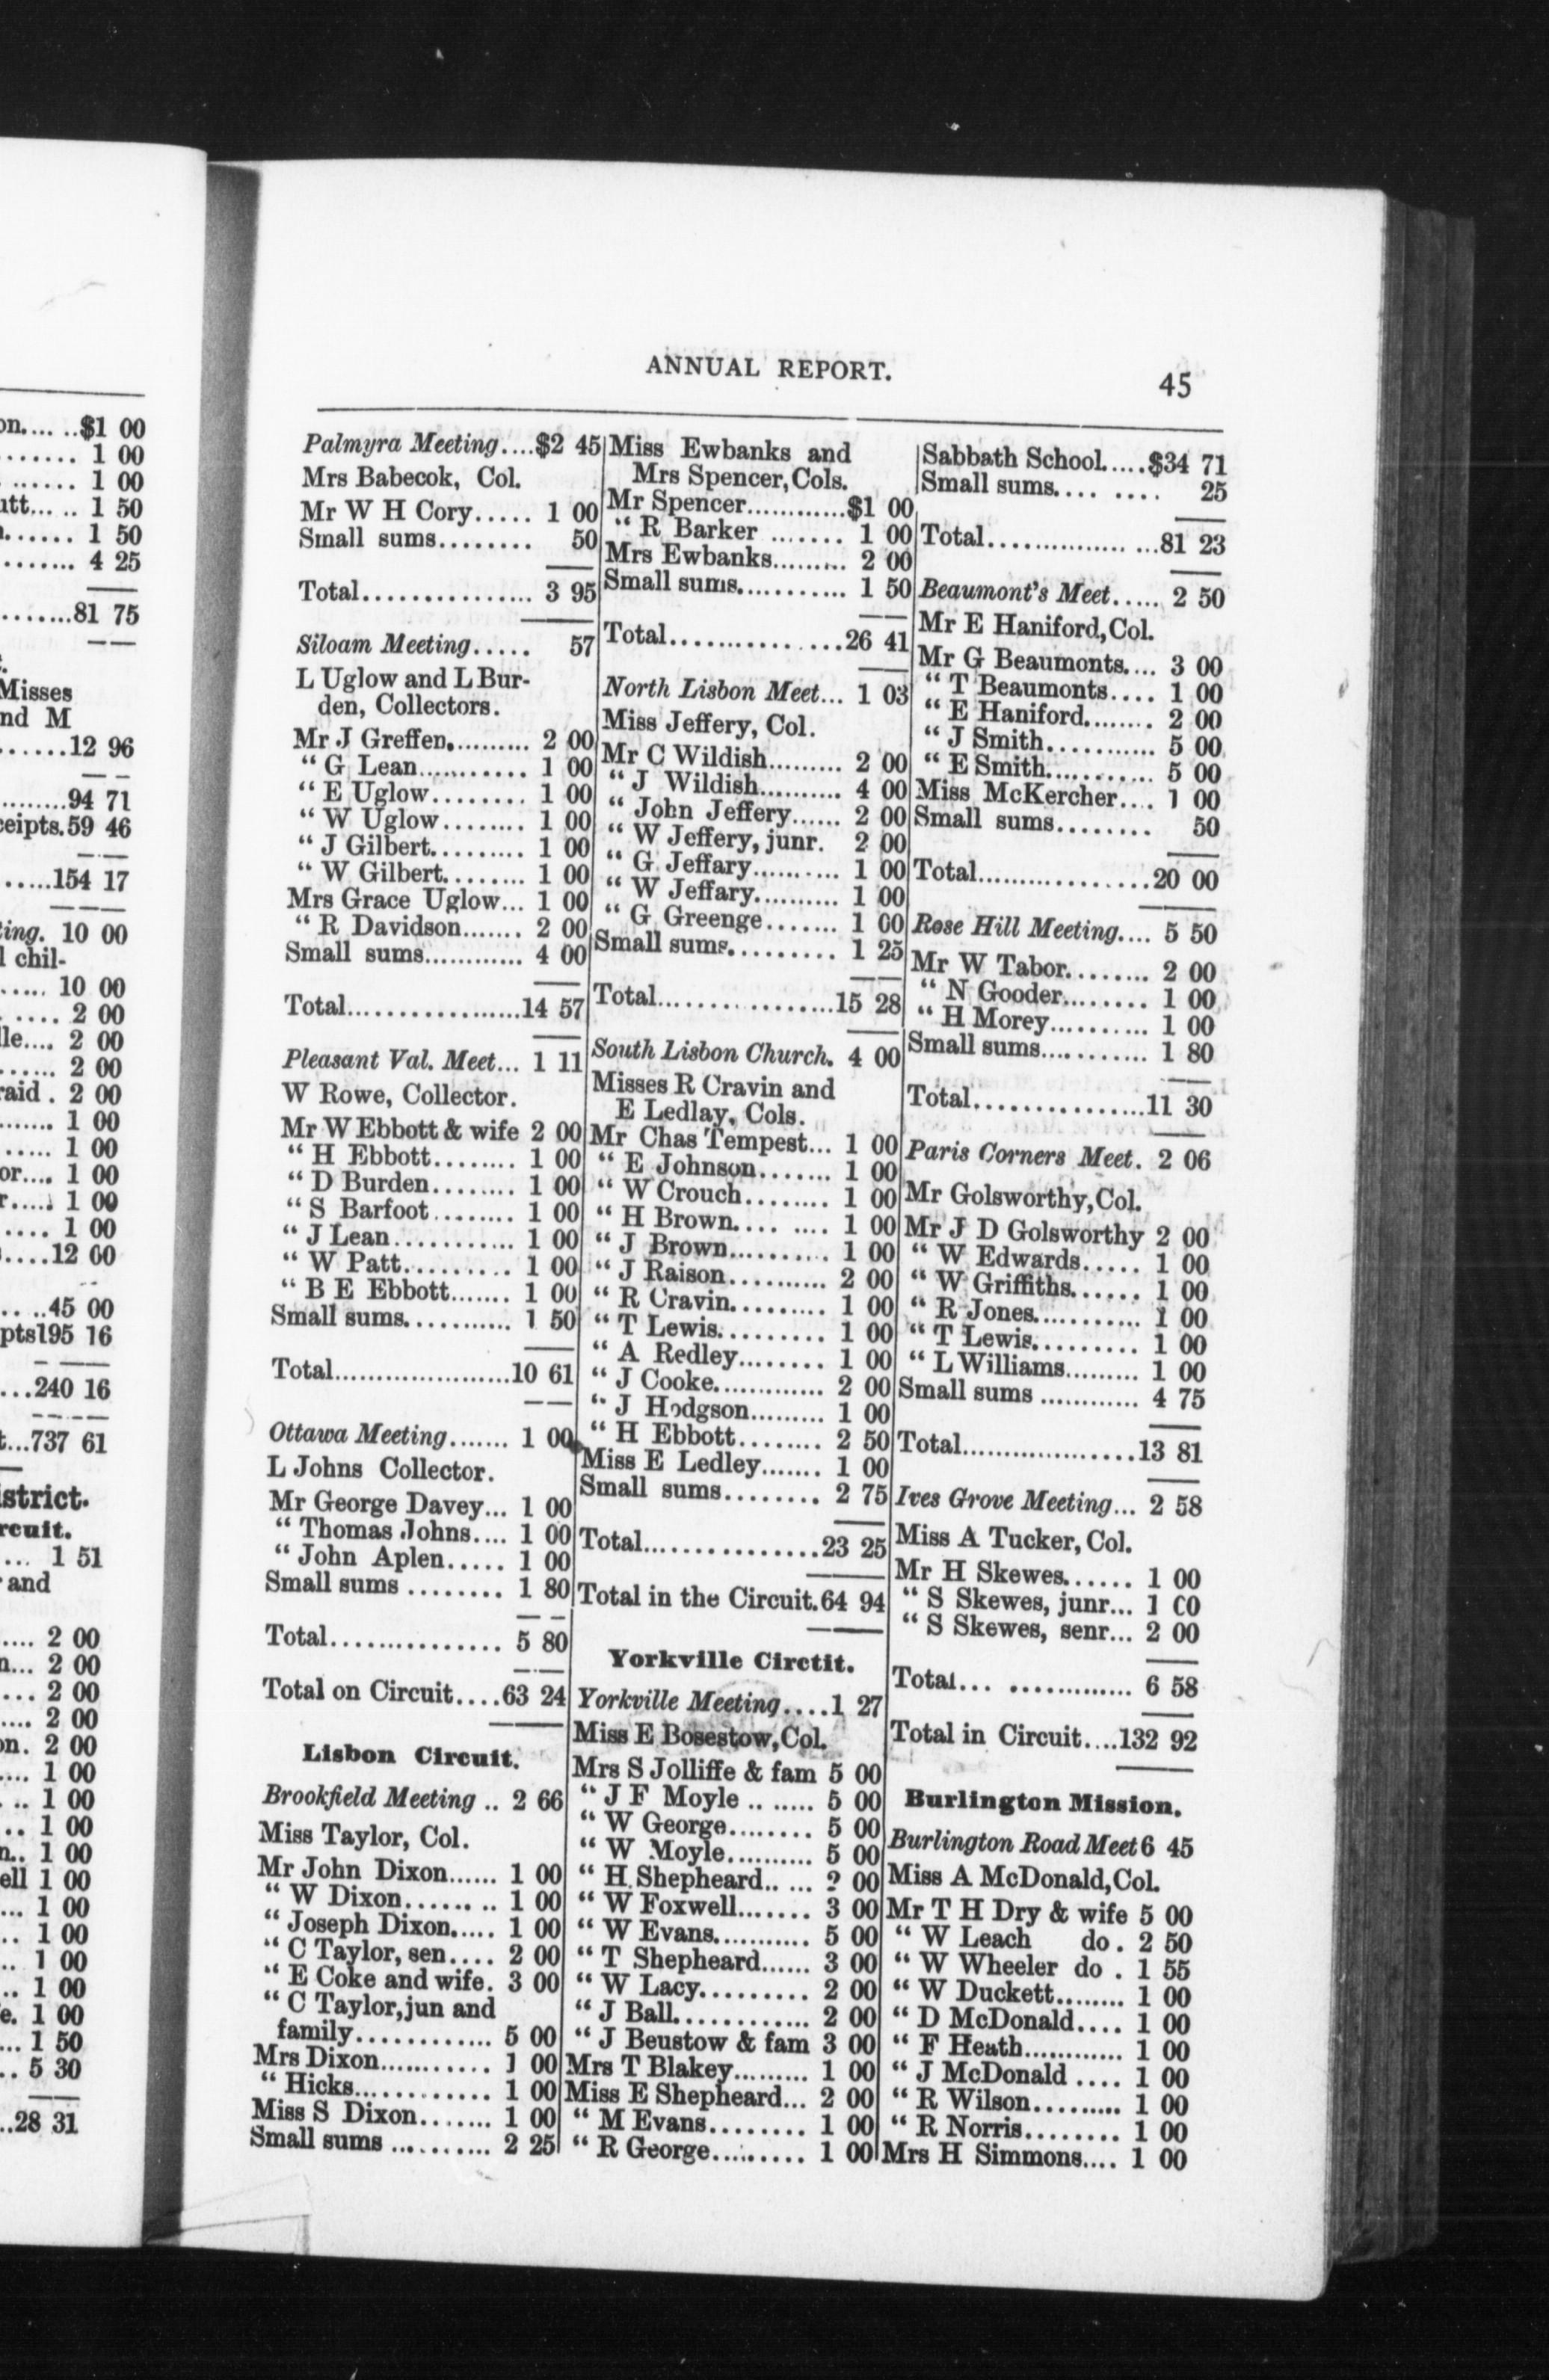 on.... ..$1 00
....... 1 00
....... 1 00
utt... .. 1 50
....... 1 50
....... 4 25
........81 75
Misses
nd M
......12 96
.........94 71
ceipts.59 46
.....154 17
ing. 10 00
l chil-
..... 10 00
..... 2 00
lle.... 2 00
...... 2 00
raid . 2 00
....... 1 00
..... 1 00
or.... 1 00
r..... 1 00
.... 1 00
....12 00
.. ..45 00
pts195 16
...240 16
t...737 61
istrict.
rcuit.
... 1 51
and
.... 2 00
n... 2 00
... 2 00
.... 2 00
on. 2 00
.... 1 00
. .. 1 00
.. 1 00
n.. 1 00
ell 1 00
... 1 00
.. 1 00
.. 1 00
.. 1 00
e. 1 00
... 1 50
.. 5 30
..28 31
ANNUAL REPORT.
45
Palmyra Meeting....$2 45
Mrs Babecok, Col.
Mr W H Cory..... 1 00
Small sums........ 50
Total............... 3 95
Siloam Meeting..... 57
L Uglow and L Bur-
den, Collectors.
Mr J Greffen.......... 2 00
" G Lean........... 1 00
" E Uglow........ 1 00
" W Uglow........ 1 00
" J Gilbert......... 1 00
" W Gilbert........ 1 00
Mrs Grace Uglow... 1 00
" R Davidson....... 2 00
Small sums............ 4 00
Total.................14 57
Pleasant Val. Meet... 1 11
W Rowe, Collector.
Mr W Ebbott & wife 2 00
" H Ebbott........ 1 00
" D Burden........ 1 00
" S Barfoot......... 1 00
" J Lean............ 1 00
" W Patt.......... 1 00
" B E Ebbott....... 1 00
Small sums........... 1 50
Total......................10 61
Ottawa Meeting....... 1 00
L Johns Collector.
Mr George Davey... 1 00
" Thomas Johns.... 1 00
" John Aplen..... 1 00
Small sums ......... 1 80
Total............... 5 80
Total on Circuit....63 24
Lisbon Circuit.
Brookfield Meeting .. 2 66
Miss Taylor, Col.
Mr John Dixon...... 1 00
" W Dixon....... .. 1 00
" Joseph Dixon..... 1 00
" C Taylor, sen.... 2 00
" E Coke and wife. 3 00
" C Taylor, jun and
family............ 5 00
Mrs Dixon........... 1 00
" Hicks............ 1 00
Miss S Dixon....... 1 00
Small sums .......... 2 25
Miss Ewbanks and
Mrs Spencer, Cols.
Mr Spencer............$1 00
" R Barker ....... 1 00
Mrs Ewbanks......... 2 00
Small sums........... 1 50
Total................26 41
North Lisbon Meet... 1 03
Miss Jeffery, Col.
Mr C Wildish......... 2 00
" J Wildish.......... 4 00
" John Jeffery...... 2 00
" W Jeffery, junr. 2 00
" G Jeffary.......... 1 00
" W Jeffary.......... 1 00
" G Greenge....... 1 00
Small sums.......... 1 25
Total.................15 28
South Lisbon Church. 4 00
Misses R Cravin and
E Ledlay, Cols.
Mr Chas Tempest... 1 00
" E Johnson....... 1 00
" W Crouch......... 1 00
" H Brown.... .... 1 00
" J Brown.......... 1 00
" J Raison........... 2 00
" R Cravin.......... 1 00
" T Lewis.......... 1 00
" A Redley........ 1 00
" J Cooke............. 2 00
" J Hodgson......... 1 00
" H Ebbott........ 2 50
Miss E Ledley....... 1 00
Small sums........ 2 75
Total.................23 25
Total in the Circuit.64 94
Yorkville Circtit.
Yorkville Meeting....1 27
Miss E Bosestow, Col.
Mrs S Jolliffe & fam 5 00
" J F Moyle .. ..... 5 00
" W George........ 5 00
" W Moyle.......... 5 00
" H. Shepheard.. ... 2 00
" W Foxwell....... 3 00
" W Evans........... 5 00
" T Shepheard...... 3 00
" W Lacy.......... 2 00
" J Ball............. 2 00
" J Beustow & fam 3 00
Mrs T Blakey......... 1 00
Miss E Shepheard... 2 00
" M Evans......... 1 00
" R George.......... 1 00
Sabbath School.....$34 71
Small sums.... .... 25
Total.............. ...81 23
Beaumont's Meet..... 2 50
Mr E Haniford, Col.
Mr G Beaumonts.... 3 00
" T Beaumonts.... 1 00
" E Haniford........ 2 00
" J Smith........... 5 00
" E Smith............ 5 00
Miss McKercher.... 1 00
Small sums........ 50
Total.................20 00
Rose Hill Meeting.... 5 50
Mr W Tabor......... 2 00
" N Gooder......... 1 00
" H Morey.......... 1 00
Small sums........... 1 80
Total................11 30
Paris Corners Meet. 2 06
Mr Golsworthy, Col.
Mr J D Golsworthy 2 00
" W Edwards..... 1 00
" W Griffiths...... 1 00
" R Jones........... 1 00
" T Lewis.......... 1 00
" L Williams......... 1 00
Small sums ............ 4 75
Total..................13 81
Ives Grove Meeting... 2 58
Miss A Tucker, Col.
Mr H Skewes...... 1 00
" S Skewes, junr... 1 00
" S Skewes, senr... 2 00
Total... ............. 6 58
Total in Circuit....132 92
Burlington Mission.
Burlington Road Meet 6 45
Miss A McDonald, Col.
Mr T H Dry & wife 5 00
" W Leach do . 2 50
" W Wheeler do . 1 55
" W Duckett........ 1 00
" D McDonald.... 1 00
" F Heath............ 1 00
" J McDonald .... 1 00
" R Wilson......... 1 00
" R Norris........ 1 00
Mrs H Simmons.... 1 00